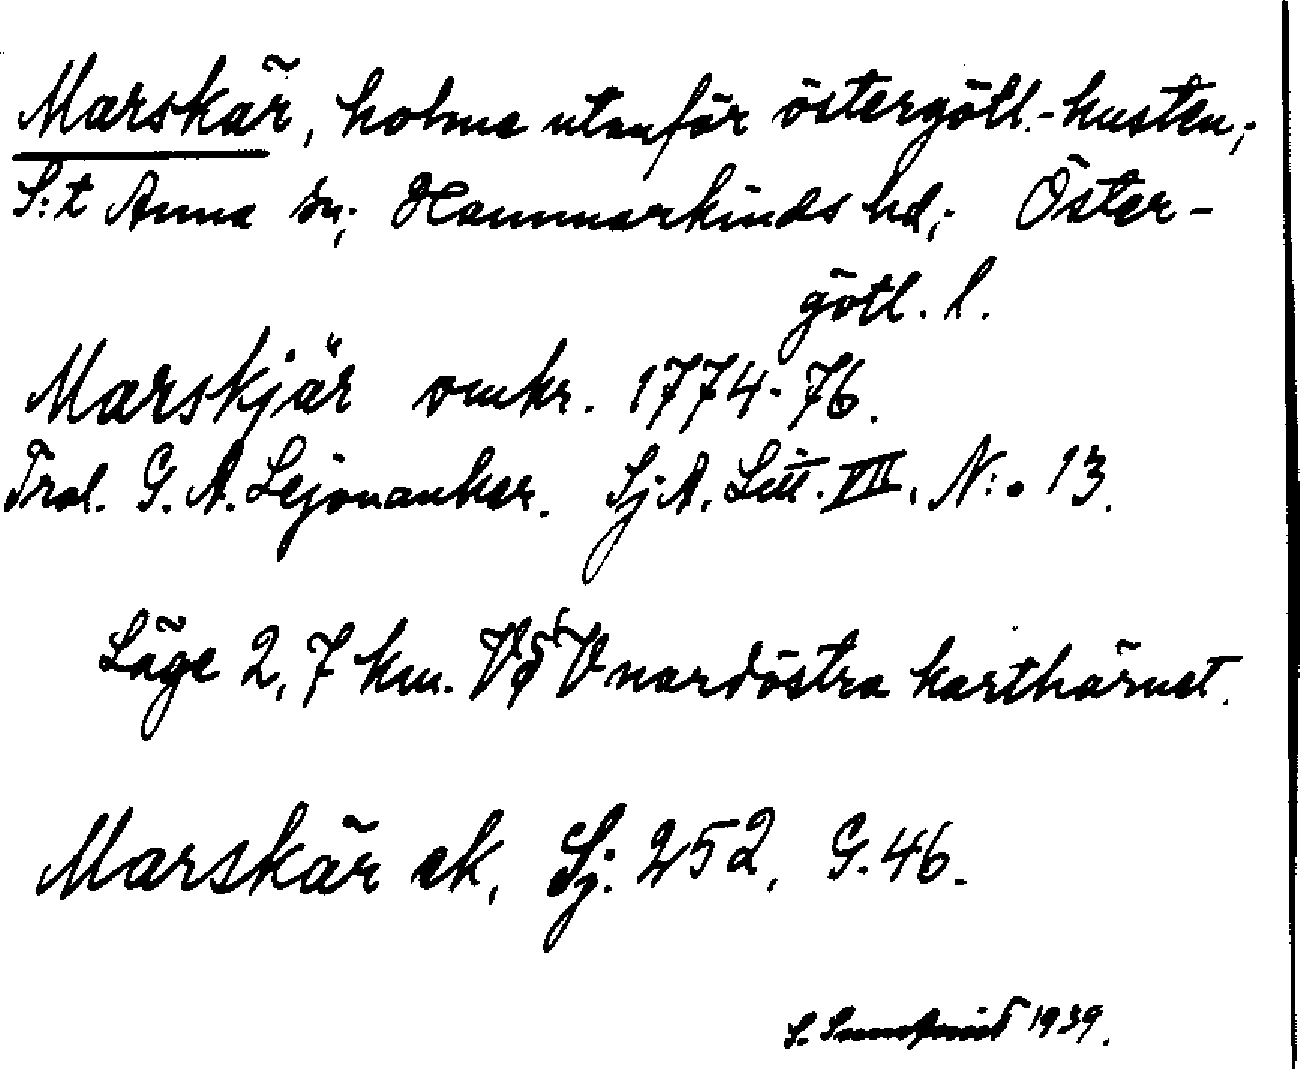 Marskär, holme utanför östergötl.-kusten;
S:t Anna sn; Hammarkinds hd; Öster-
götl. l.
Marskjär omkr. 1774-76.
Trol. G. A. Lejonanker. Sj.A. Litt. VIII. N:o 13.
Läge 2,7 km. V nordöstra karthörnet.
Marskär ek, Sj. 252, G. 46.
S. 1939.